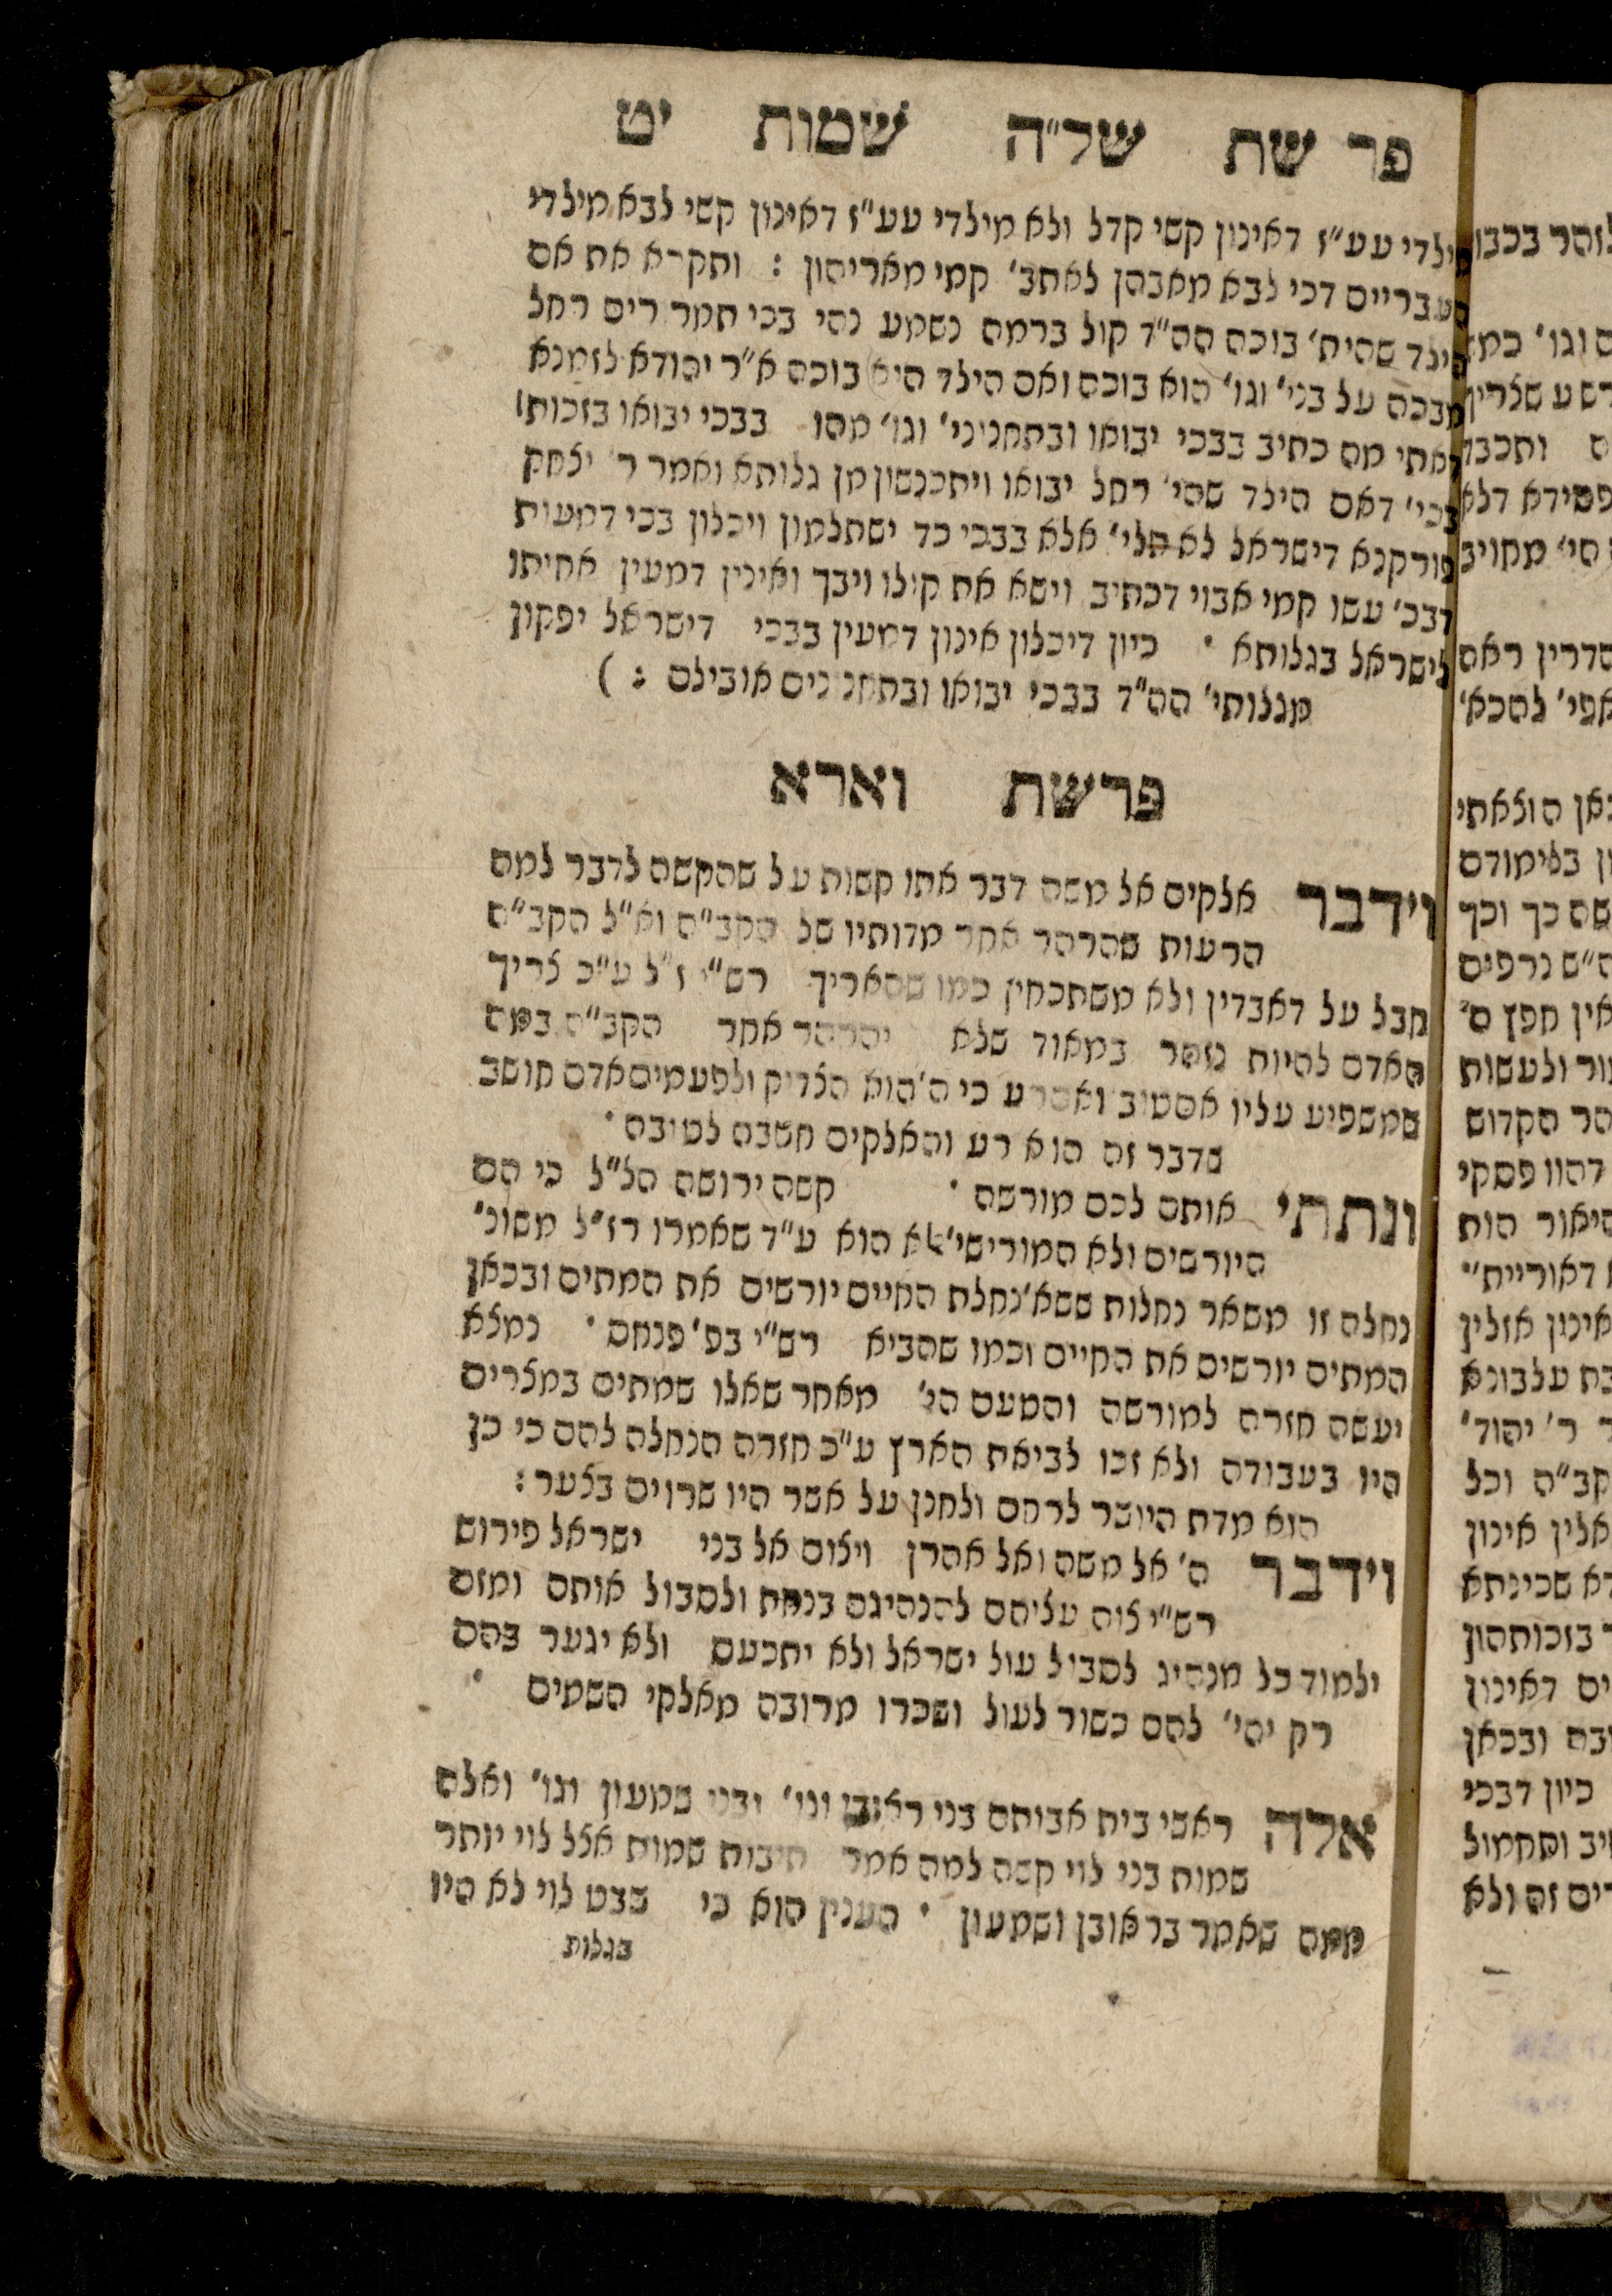 פר שת של״ה שמות יט
מילדי עע״ז דאינון קשי קדל ולא מילדי עע״ז דאינון קשי לבא מילדי
העבריים דכי לבא מאבהן לאתב׳ קמי מאריהון : ותקרא את אם
הילד שהית׳ בוכה הה״ד קול ברמה נשמע נהי בכי תמרורים רחל
מבכה על בני׳ וגו׳ הוא בוכה ואם הילד היא בוכה א״ר יהודא לזמנא
דאתי מה כתיב בבכי יבואו ובתחנוני׳ וגו׳ מהו בבכי יבואו בזכות
בכי׳ דאם הילד שהי׳ רחל יבואו ויתכנשון מן גלותא ואמר ר׳ יצחק
פורקנא דישראל לא תלי׳ אלא בבכי כד ישתלמון ויכלון בכי דמעות
דבכ׳ עשו קמי אבוי דכתיב וישא את קולו ויבך ואינין דמעין אחיתו
לישראל בגלותא • כיון דיכלון אינון דמעין בבכי דישראל יפקון
מגלותי׳ הה״ד בבכי יבואו ובתחנונים אובילם : )
פרשת וארא
וידבר אלקים אל משה דבר אתו קשות על שהקשה לדבר למה
הרעות שהרהר אחר מדותיו של הקב״ה וא״ל הקב״ה
חבל על דאבדין ולא משתכחין כמו שהאריך רש״י ז״ל ע״כ צריך
האדם להיות נזהר במאוד שלא יהרהר אחר הקב״ה במה
שמשפיע עליו אם טוב ואם רע כי ה׳ הוא הצדיק ולפעמים אדם חושב
שדבר זה הוא רע והאלקים חשבה לטובה •
ונתתי אותה לכם מורשה • קשה ירושה הל״ל כי הם
היורשים ולא המורישי׳ אלא הוא ע״ד שאמרו רז״ל משונ׳
נחלה זו משאר נחלות שבא׳ נחלת החיים יורשים את המתים ובכאן
המתים יורשים את החיים וכמו שהביא רש״י בפ׳ פנחס • נמצא
יעשה חזרה למורשה והטעם הי׳ מאחר שאלו שמתים במצרים
היו בעבודה ולא זכו לביאת הארץ ע״כ חזרה הנחלה להם כי כן
הוא מדת היושר לרחם ולחנן על אשר היו שרוים בצער :
וידבר ה׳ אל משה ואל אהרן ויצום אל בני ישראל פירוש
רש״י צוה עליהם להנהיגם בנחת ולסבול אותם ומזה
ילמוד כל מנהיג לסבול עול ישראל ולא יתכעס ולא יגער בהם
רק יהי׳ להם כשור לעול ושכרו מרובה מאלקי השמים •
אלה ראשי בית אבותם בני ראובן וגו׳ ובני שמעון וגו׳ ואלה
שמות בני לוי קשה למה אמר תיבות שמות אצל לוי יותר
ממה שאמר בראובן ושמעון • הענין הוא כי שבט לוי לא היו
בגלות